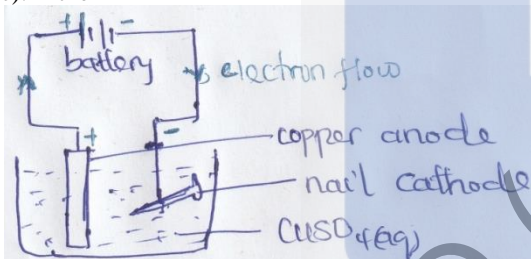 + -
battery
electron flow
+ -
copper anode
nail cathode
CuSO4(aq)